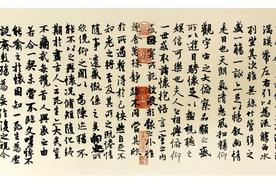 列坐其次雖無絲竹管弦之
盛一觴一詠亦足以暢敘幽情
是日也天朗氣清惠風和暢仰
觀宇宙之大俯察品類之盛
所以遊目騁懷足以極視聽之
娛信可樂也夫人之相與俯仰
一世或取諸懷抱悟言一室之內
或因寄所託放浪形骸之外雖
趣舍萬殊靜躁不同當其欣
於所遇暫得於己怏然自足不
知老之將至及其所之既惓情
隨事遷感慨係之矣向之所
欣俛仰之閒以為陳迹猶不
能不以之興懷況脩短隨化終
期於盡古人云死生亦大矣豈
不痛哉每攬昔人興感之由
若合一契未嘗不臨文嗟悼不
能喻之於懷固知一死生為虛
誕齊彭殤為妄作後之視今